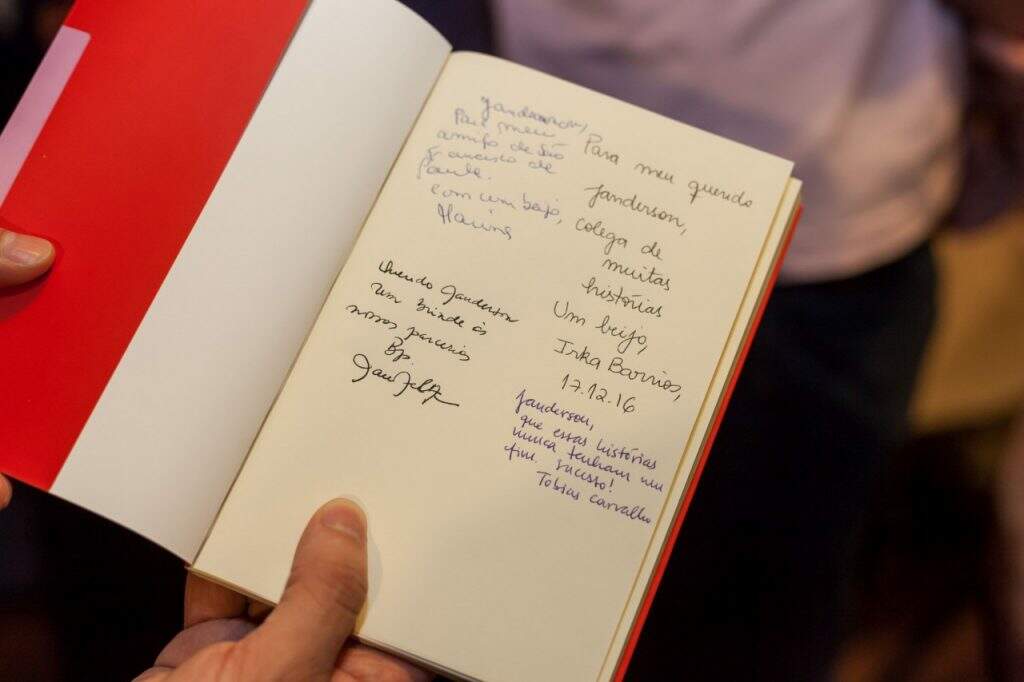 Janderson,
Para meu
amigo de São
Francisco de
Paula.
com um beijo,
Marina
Para meu querido
Janderson,
colega de
muitas
histórias
Um beijo,
Irka Barrios,
17.12.16
Querido Janderson
um brinde às
nossas parcerias
Bjs
Janderson,
que essas histórias
nunca tenham um
fim. sucesso!
Tobias Carvalho